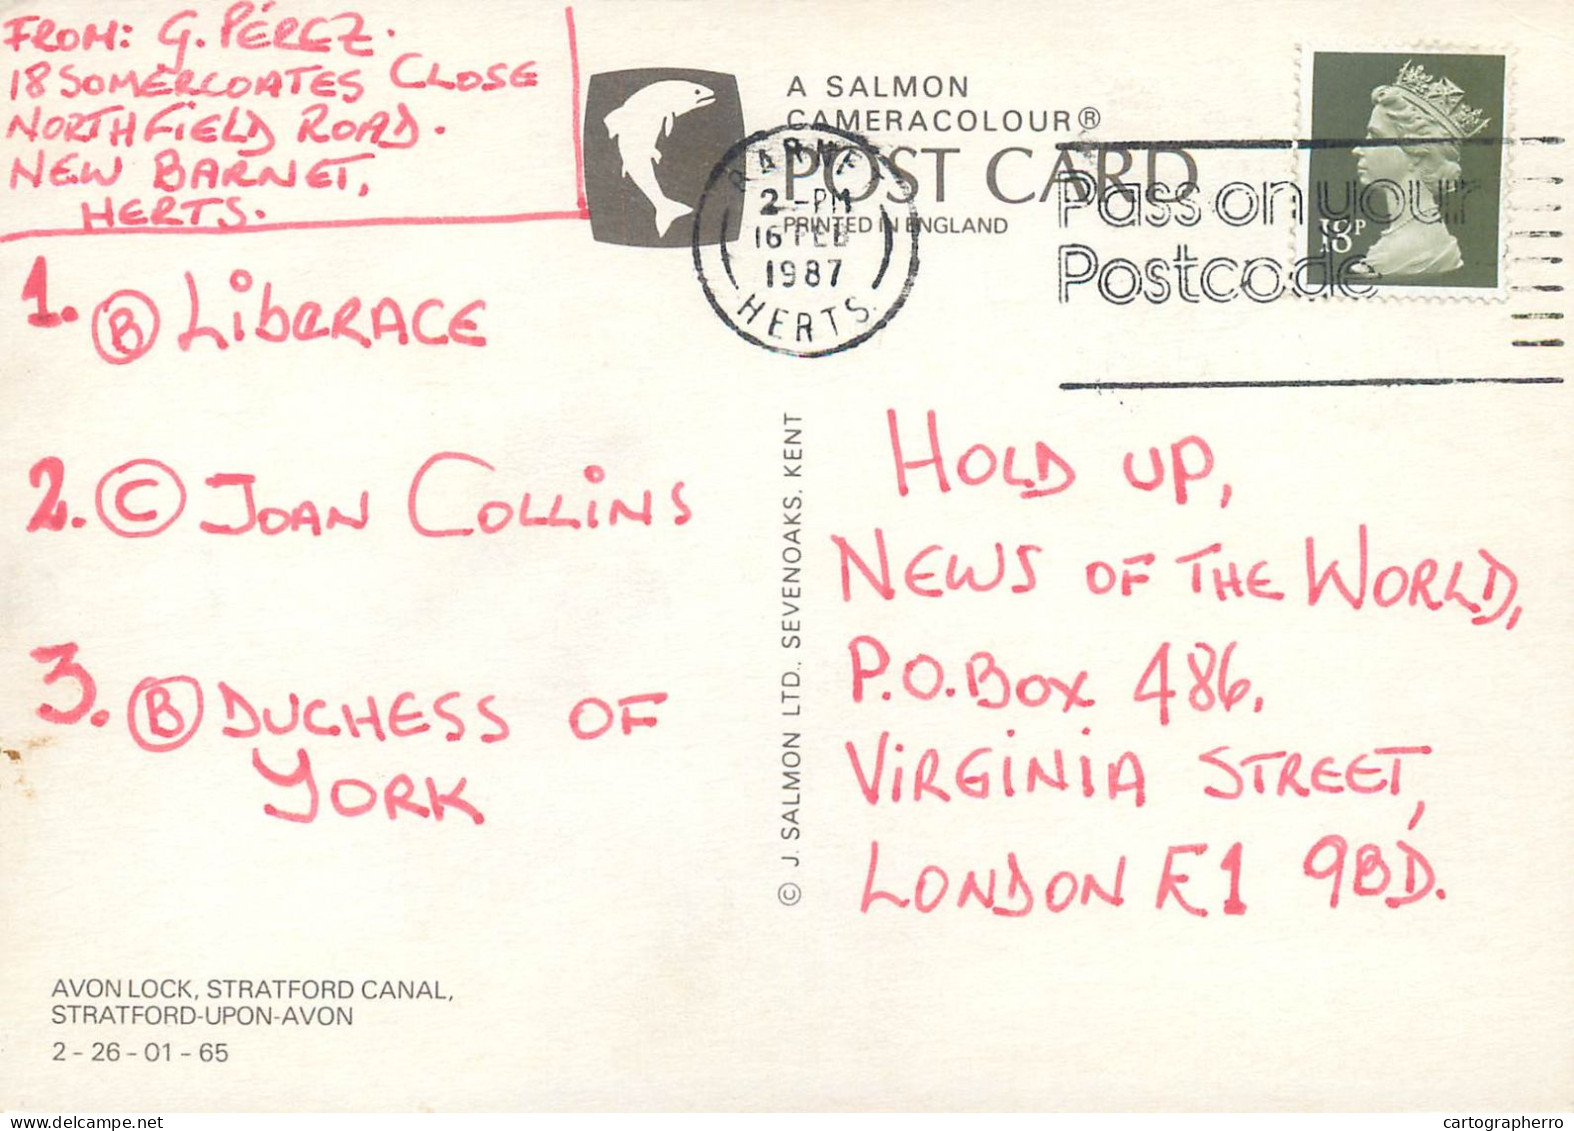 FROM: G. PÉREZ.
18 SOMERCOATES CLOSE
NORTHFIELD ROAD.
NEW BARNET,
HERTS.
A SALMON
CAMERACOLOUR®
POST CARD
PRINTED IN ENGLAND
BARNET
2 - PM
16 FEB
1987
HERTS.
Pass on your
Postcode
18P
1. Ⓑ LIBERACE
2. Ⓒ JOAN COLLINS
3. Ⓑ DUCHESS OF
YORK
© J. SALMON LTD., SEVENOAKS, KENT
HOLD UP,
NEWS OF THE WORLD,
P.O. BOX 486,
VIRGINIA STREET,
LONDON E1 9BD.
AVON LOCK, STRATFORD CANAL,
STRATFORD-UPON-AVON
2 - 26 - 01 - 65
delcampe.net
cartographerro